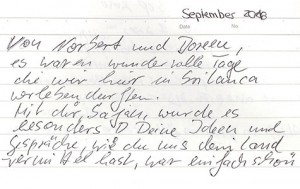 September 2018
Date No
Von Norbert und Doreen,
es waren wundervolle Tage
die wir hier in Srilanca
verleben durften.
Mit dir, Safan, wurde es
besonders Deine Ideen und
gespräche, wie du uns dem Land
vermittelt hast, war einfach schön